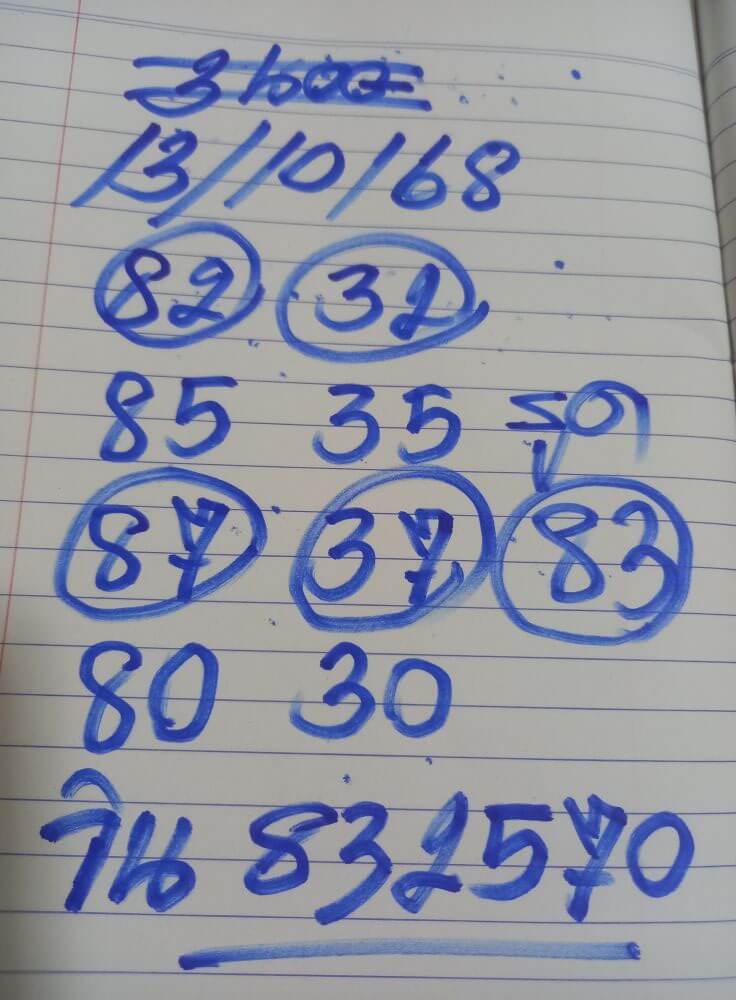 13/10/68
82 32
85 35 รูด
87 37 83
80 30
วิน 832570